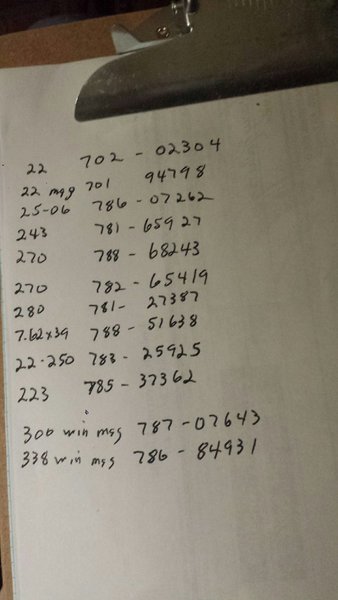 22 702 - 02304
22 mag 701 94798
25-06 786 - 07262
243 781 - 65927
270 788 - 68243
270 782 - 65419
280 781- 27387
7.62x39 788 - 51638
22-250 783 - 25925
223 785 - 37362
300 win mag 787 - 07643
338 win mag 786 - 84931